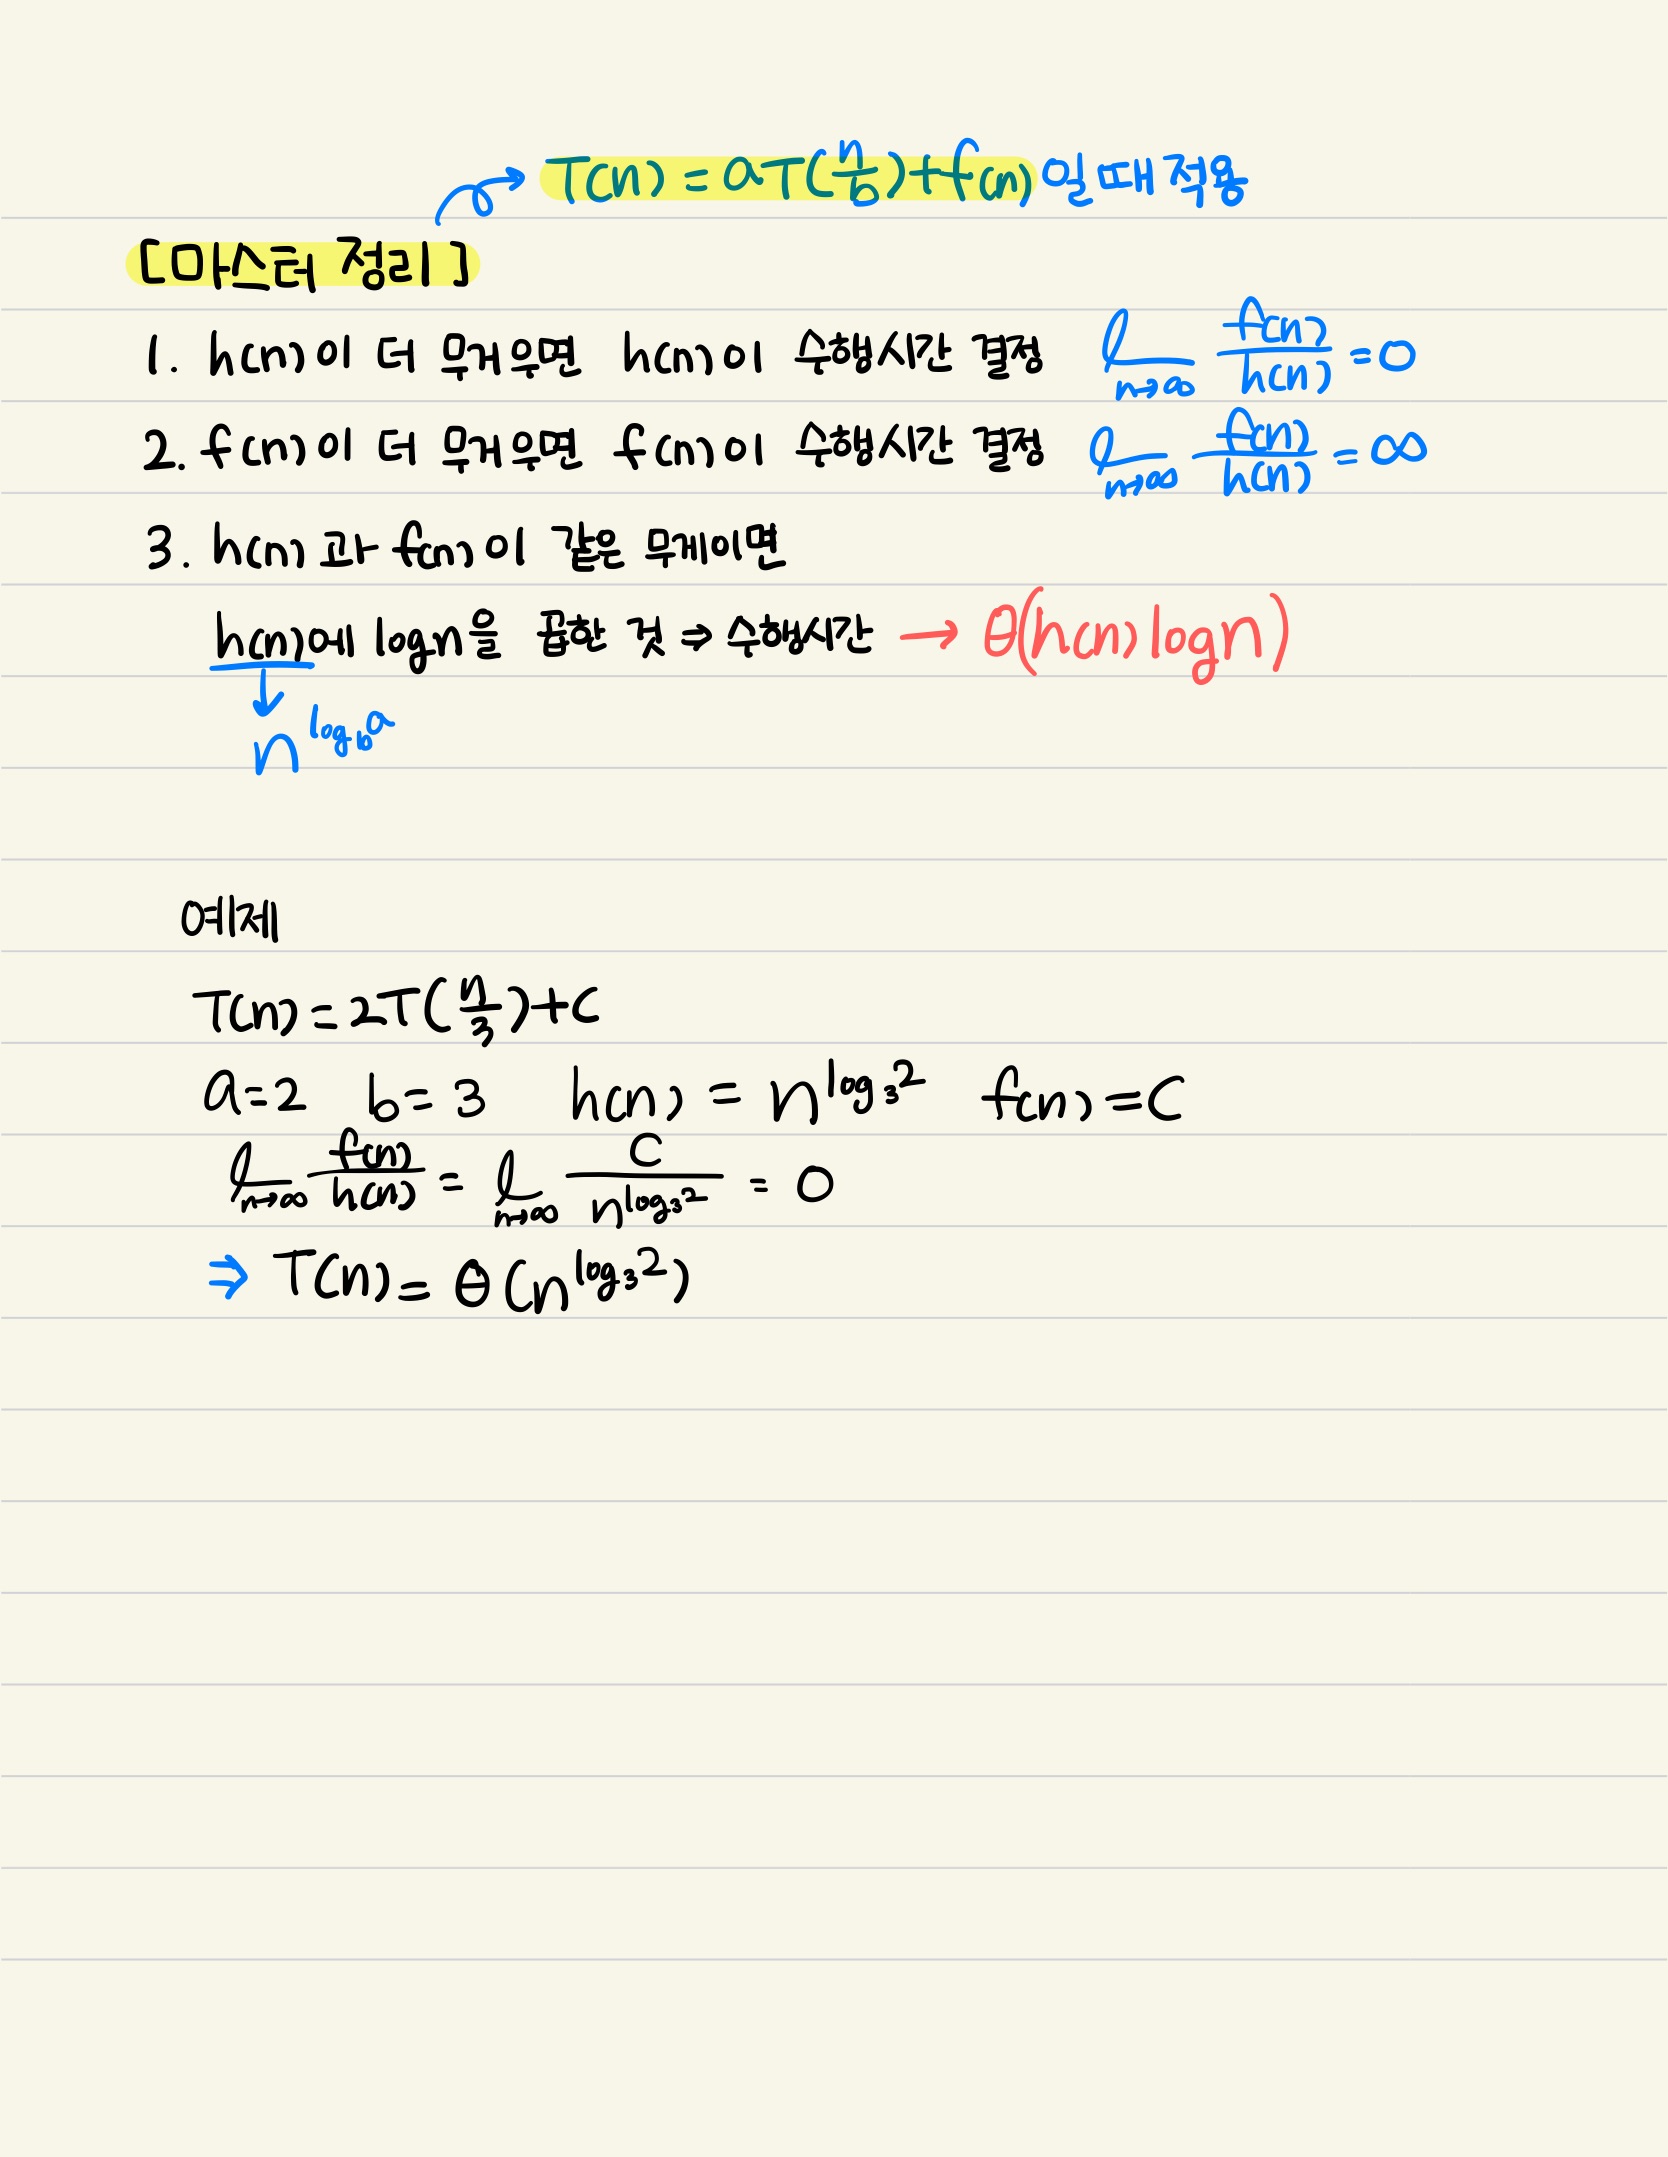 T(n) = aT(n/b)+f(n) 일 때 적용
[마스터 정리]
1. h(n)이 더 무거우면 h(n)이 수행시간 결정 lim n→∞ f(n)/h(n) = 0
2. f(n)이 더 무거우면 f(n)이 수행시간 결정 lim n→∞ f(n)/h(n) = ∞
3. h(n)과 f(n)이 같은 무게이면
h(n)에 logn을 곱한 것 ⇒ 수행시간 → θ(h(n)logn)
↓
n^log_b a
예제
T(n) = 2T(n/3)+C
a=2 b=3 h(n) = n^log_3 2 f(n) = C
lim n→∞ f(n)/h(n) = lim n→∞ C/n^log_3 2 = 0
⇒ T(n) = θ(n^log_3 2)